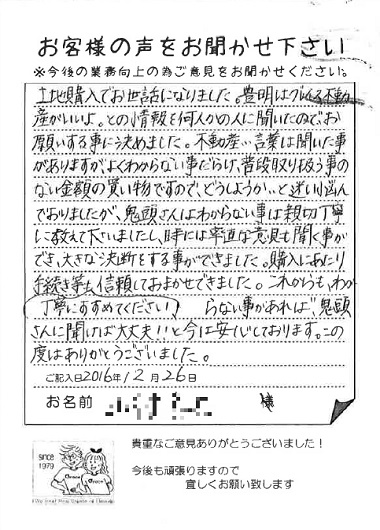 お客様の声をお聞かせ下さい
※今後の業務向上の為ご意見をお聞かせください。
土地購入でお世話になりました。豊明は
産がいいよ。との情報を何人かの人に聞いたのでお
願いする事に決めました。不動産…言葉は聞いた事
がありますがよくわからない事だらけ、普段取り扱う事の
ない金額の買い物ですので、どうしようか…と迷い悩ん
でおりましたが、鬼頭さんはわからない事は親切丁寧
に教えて下さいましたし、時には率直な意見も聞く事が
でき、大きな決断をする事ができました。購入にあたり
手続き等も信頼しておまかせできました。これからも、わか
丁寧にすすめてください！ らない事があれば“鬼頭
さんに聞けば大丈夫!!と今は安心しております。この
度はありがとうございました。
ご記入日2016年12月26日
お名前 様
since
1979
貴重なご意見ありがとうございました！
今後も頑張りますので
宜しくお願い致します